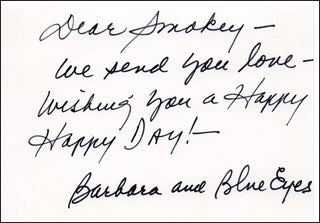 Dear Smokey—
We send you love—
Wishing you a Happy
Happy DAY!—
Barbara and Blue Eyes